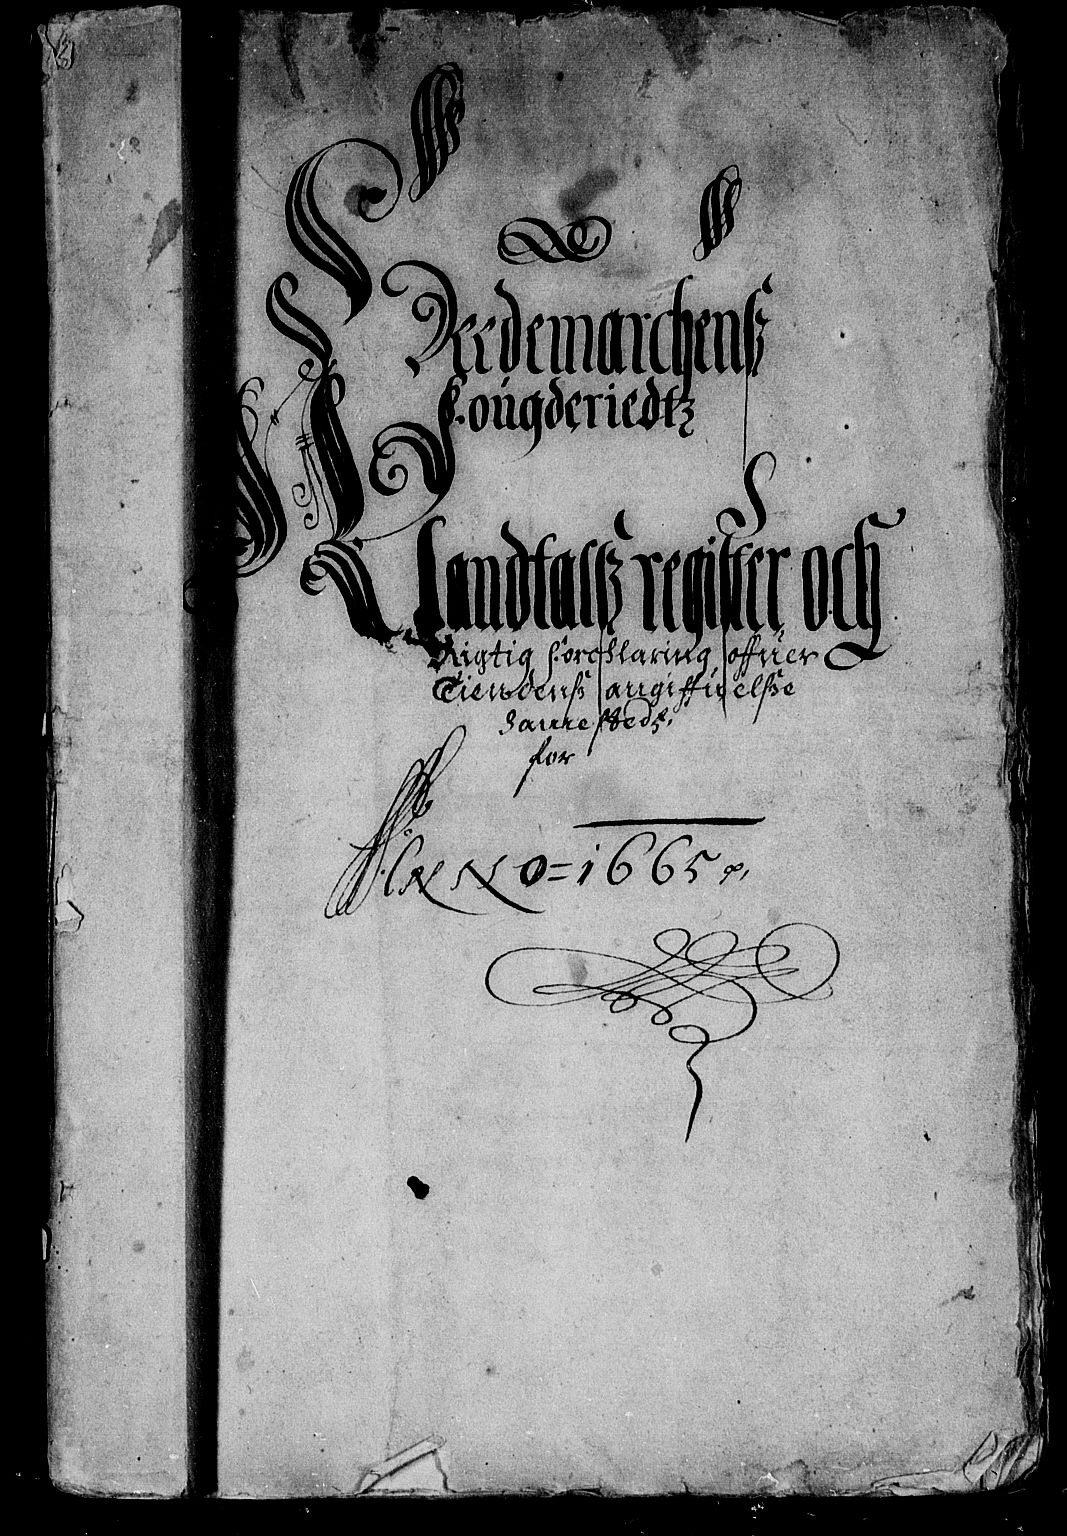 Heedemarchens
fougderiedtz
Landtaltz register och
Rigtig forchlaring offuer
Tiendens angiffuelsse
sammestedz,
for
ANNO=1665